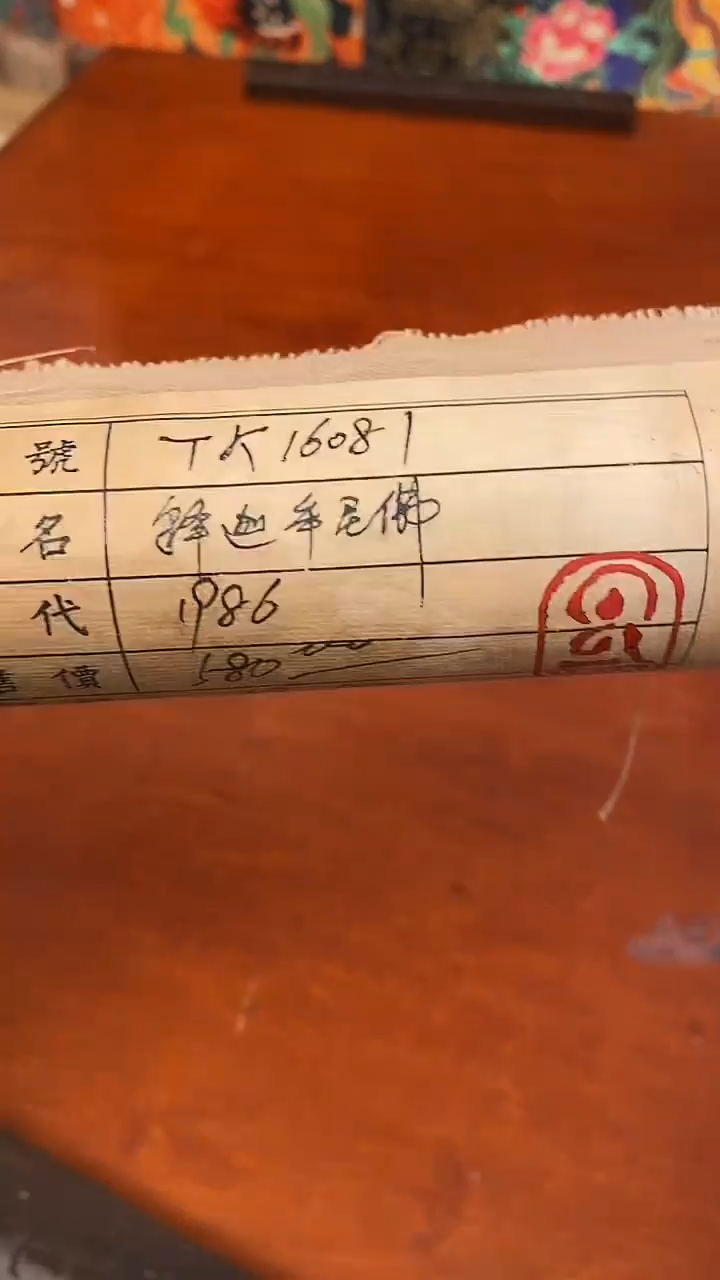 號 TK16081
名 釋迦牟尼佛
代 1986
售價 580